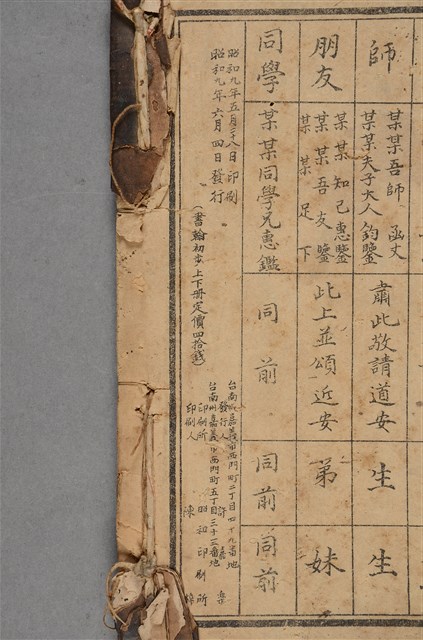 師
某某吾師 函丈
某某夫子大人 鈞鑒
肅此敬請道安
生
生
朋友
某某知己惠鑒
某某吾友 鑒
某某足下
此上並頌近安
弟
妹
同學
某某同學兄惠鑑
同前
同前
同前
昭和九年五月二十八日印刷
昭和九年六月四日發行
(書翰初步上下册定價四拾錢)
台南州嘉義市西門町二丁目四十九番地
發行人 許
台南州嘉義市西門町五丁目三十三番地
印刷所 昭和印刷所
印刷人 陳